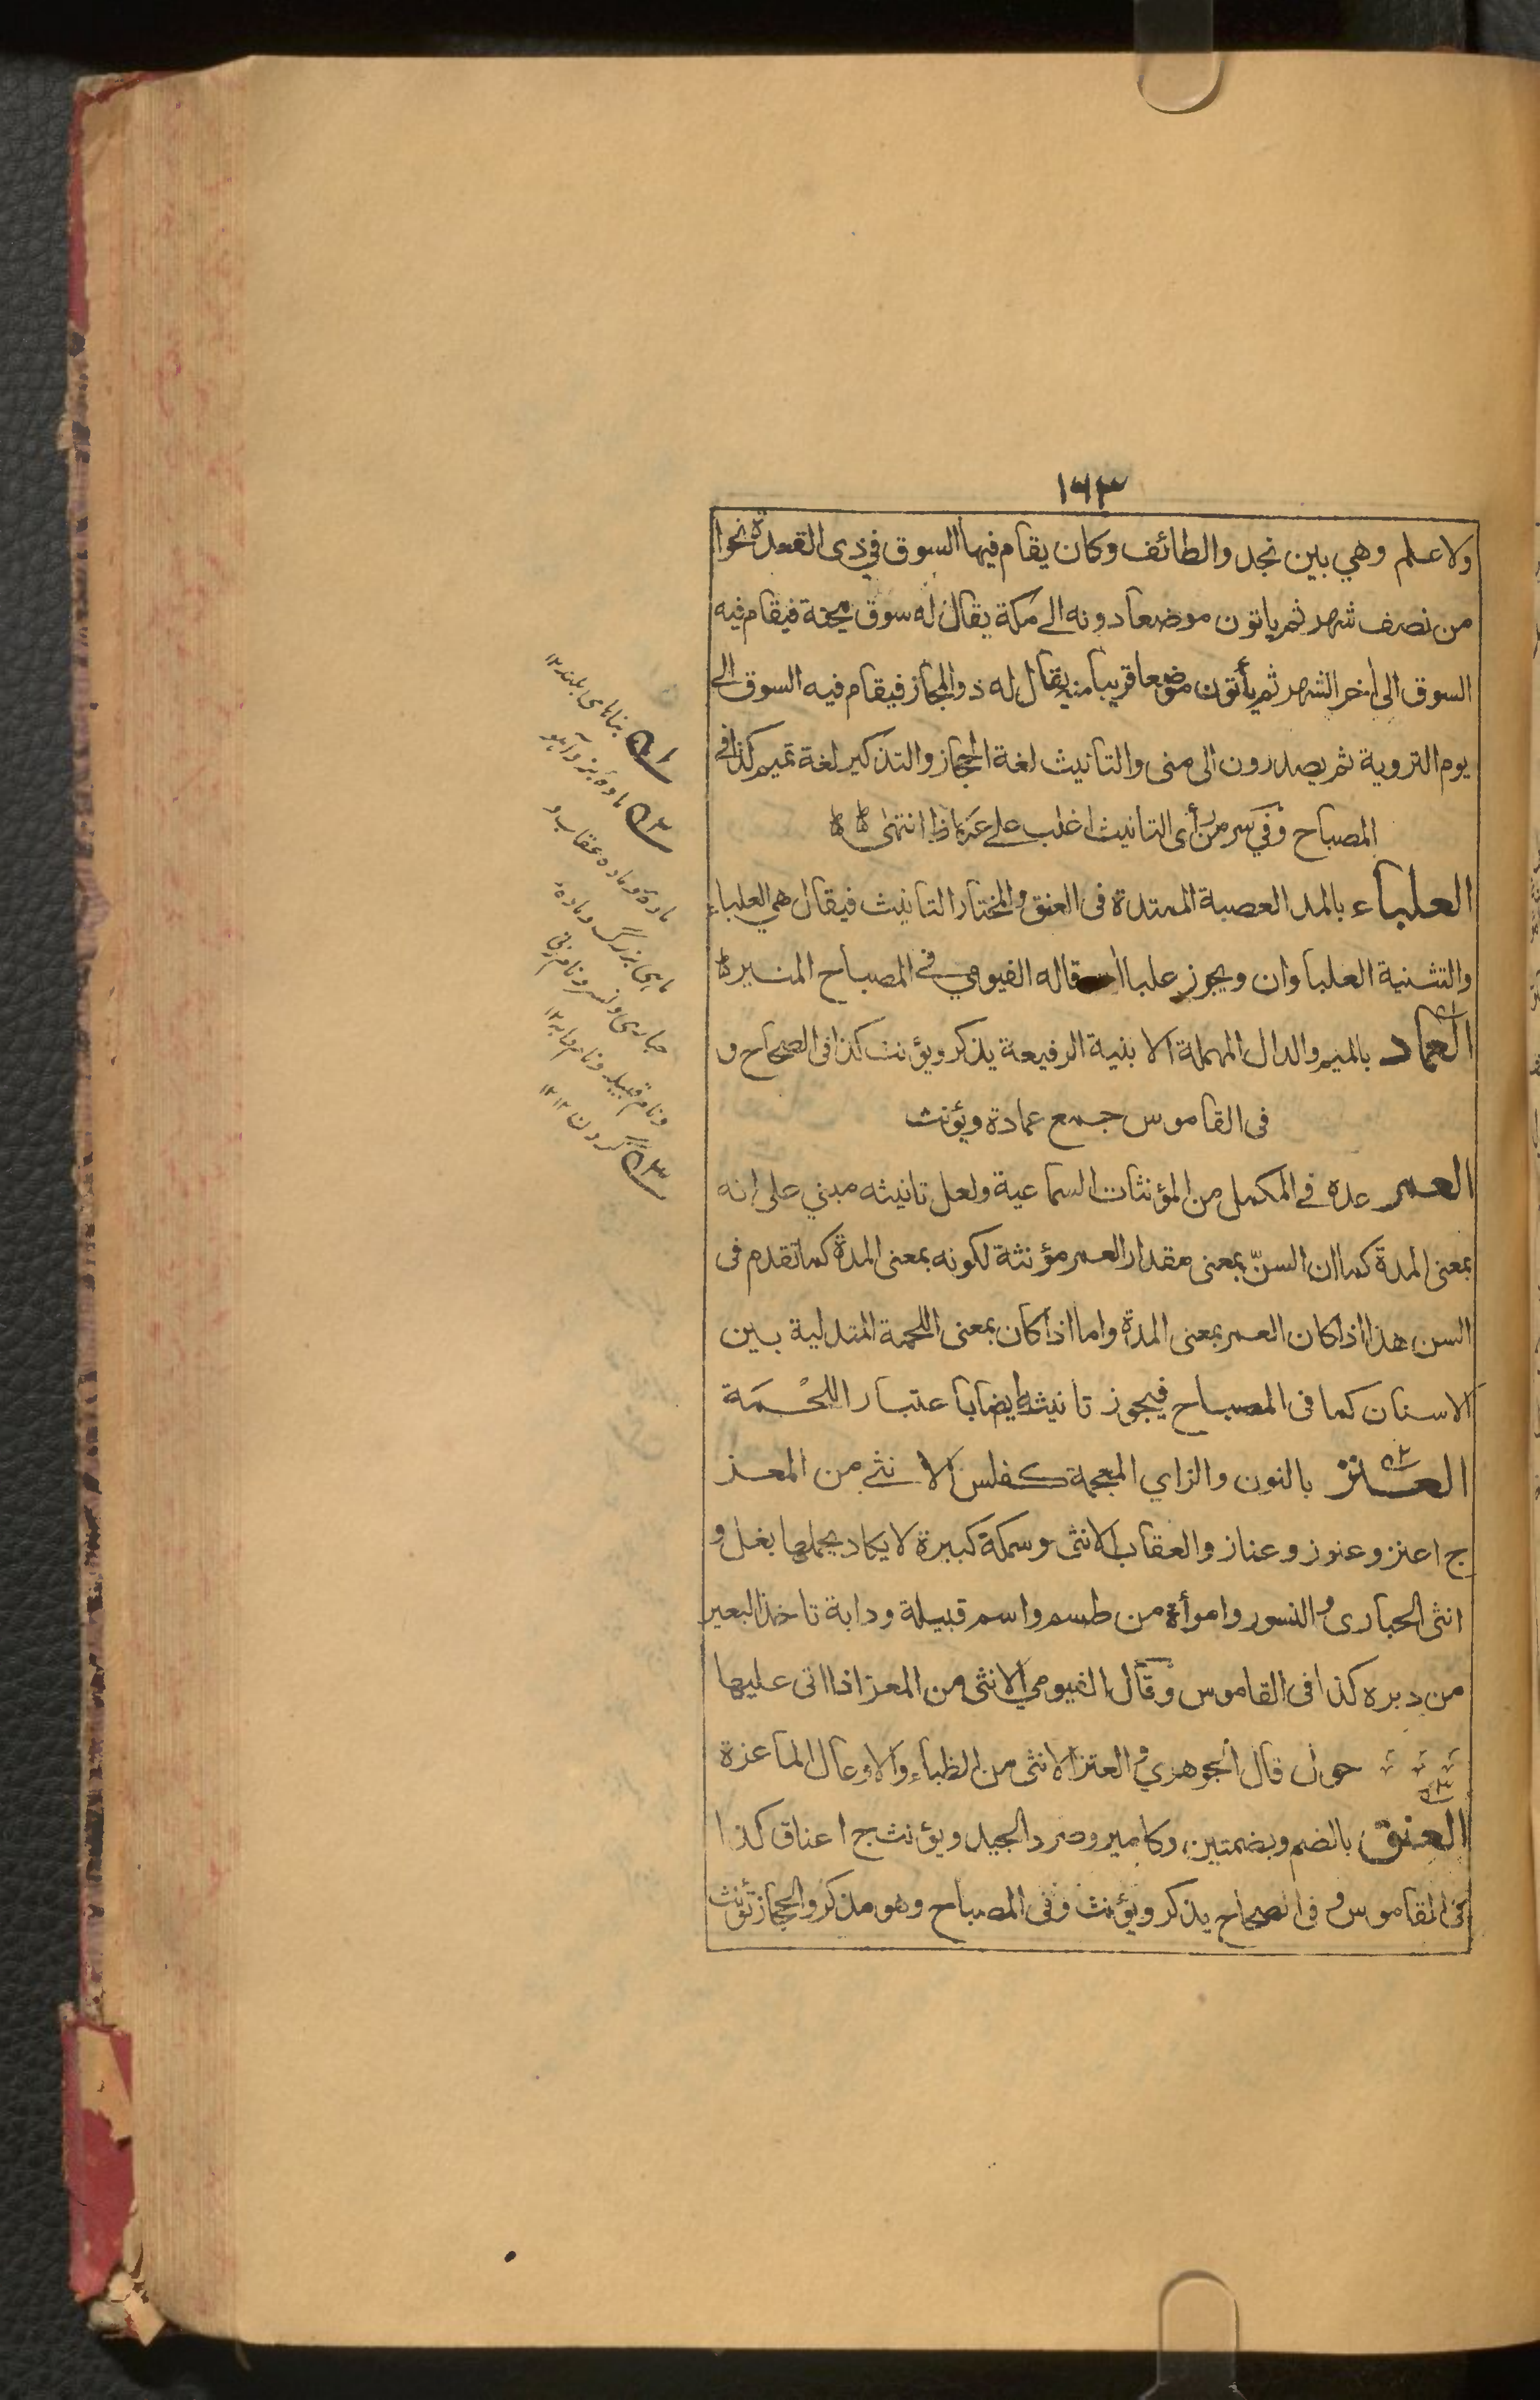 ١٦٣
ولا علم وهي بين نجد والطائف وكان يقام فيها السوق في ذى القعدة نحوا
من نصف شهر ثم ياتون موضعا دونه الى مكة يقال له سوق مجنة فيقام فيه
السوق الى اخر الشهر ثم يأتون موضعا قريبا منه يقال له ذو المجاز فيقام فيه السوق الى
يوم التروية ثم يصدرون الى منى والتانيث لغة الحجاز والتذكير لغة تميم كذا في
المصباح وفي سر من رأى التانيث اغلب على عكاظ انتهى
العلباء بالمد العصبة الممتدة فى العنق والمختار التانيث فيقال هى العلباء
والتثنية العلباوان ويجوز علبا ان قاله الفيومي في المصباح المنير
العماد بالميم والدال المهملة الابنية الرفيعة يذكر ويؤنث كذا فى الصحاح و
فى القاموس جمع عمادة ويؤنث
العمر عده في المكمل من المؤنثات السماعية ولعل تانيثه مبني على انه
بمعنى المدة كما ان السنّ بمعنى مقدار العمر مؤنثة لكونه بمعنى المدة كما تقدم فى
السن هذا اذا كان العمر بمعنى المدة واما اذا كان بمعنى اللحمة المتدلية بين
الاسنان كما فى المصباح فيجوز تانيثه ايضا باعتبار اللحْمَة
العنز بالنون والزاي المعجمة كفلس الانثى من المعز
ج اعنز وعنوز وعناز والعقاب الانثى وسمكة كبيرة لا يكاد يحملها بغل و
انثى الحبارى والنسور وامرأة من طسم واسم قبيلة ودابة تاخذ البعير
من دبره كذا فى القاموس وقال الفيومي الانثى من المعز اذا اتى عليها
حول قال الجوهري والعنز الانثى من الظباء والاوعال الماعزة
العنق بالضم وبضمتين وكامير وصرد الجيد ويؤنث ج اعناق كذا
فى القاموس وفى الصحاح يذكر ويؤنث وفى المصباح وهو مذكر والحجاز تؤنث
٥١ بناهاى بلند ١٢
٥٢ ماده بز وآهو
ماده وماده عقاب و
ماهى بزرگ وماده
حبارى ونسر ونام زنى
ونام قبيله ونام دابه ١٢
٥٣ گردن ١٢ ١٢